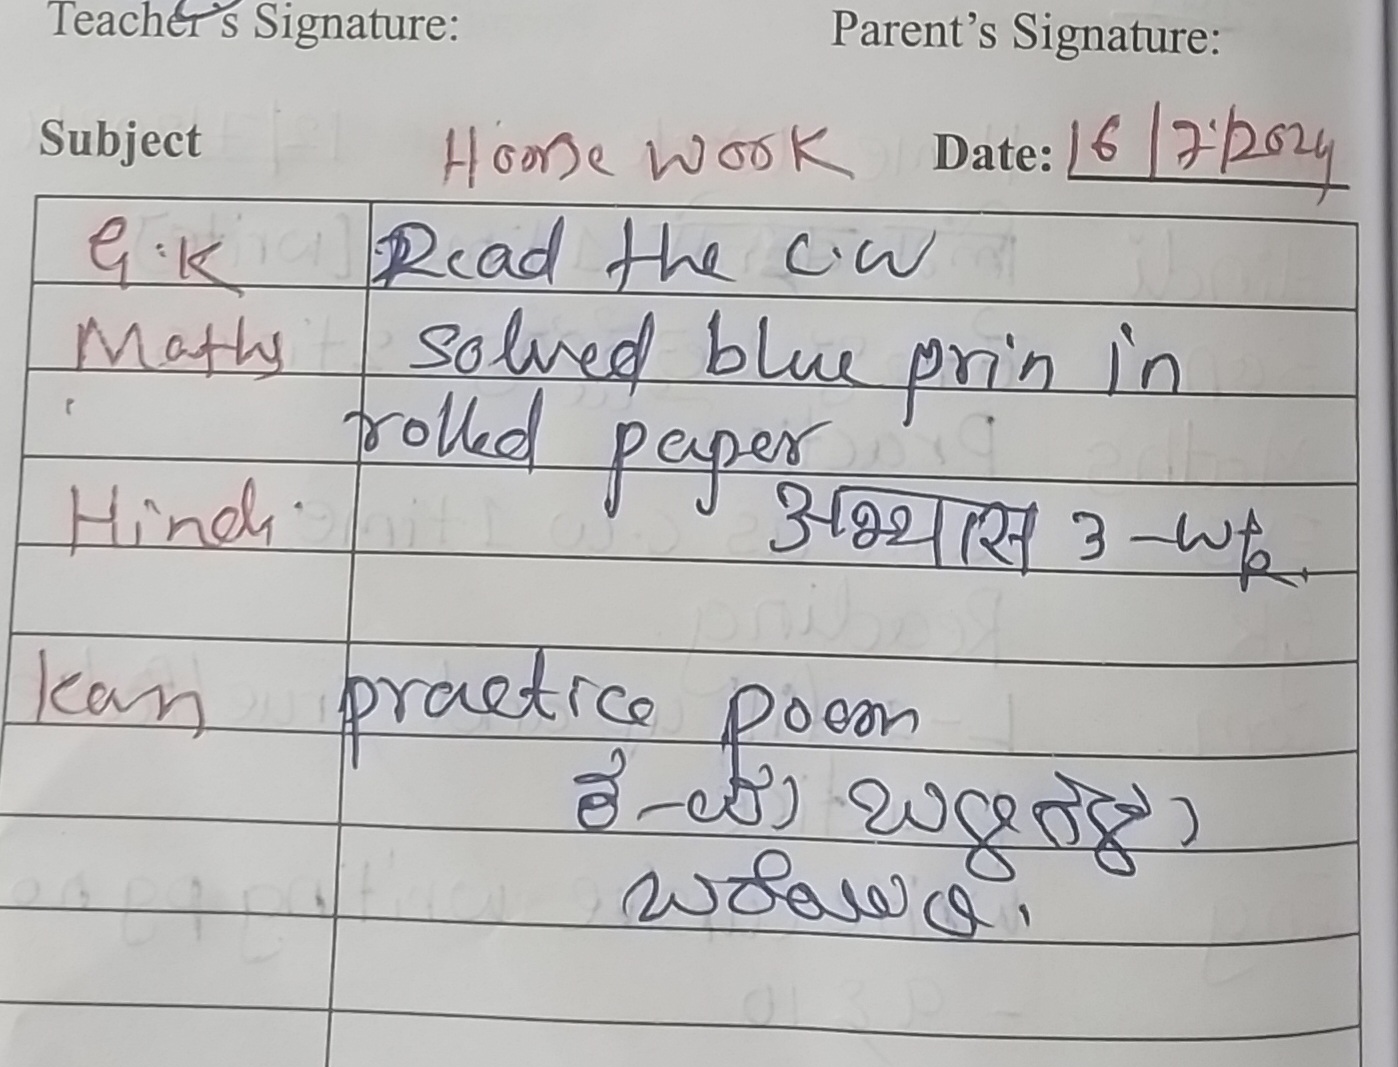 Teacher's Signature: Parent's Signature:
Subject Home Work Date: 16/7/2024
G.K Read the C.W
Maths solved blue prin in
rolled paper
Hindi अभ्यास 3 -wb
Kan practice poem